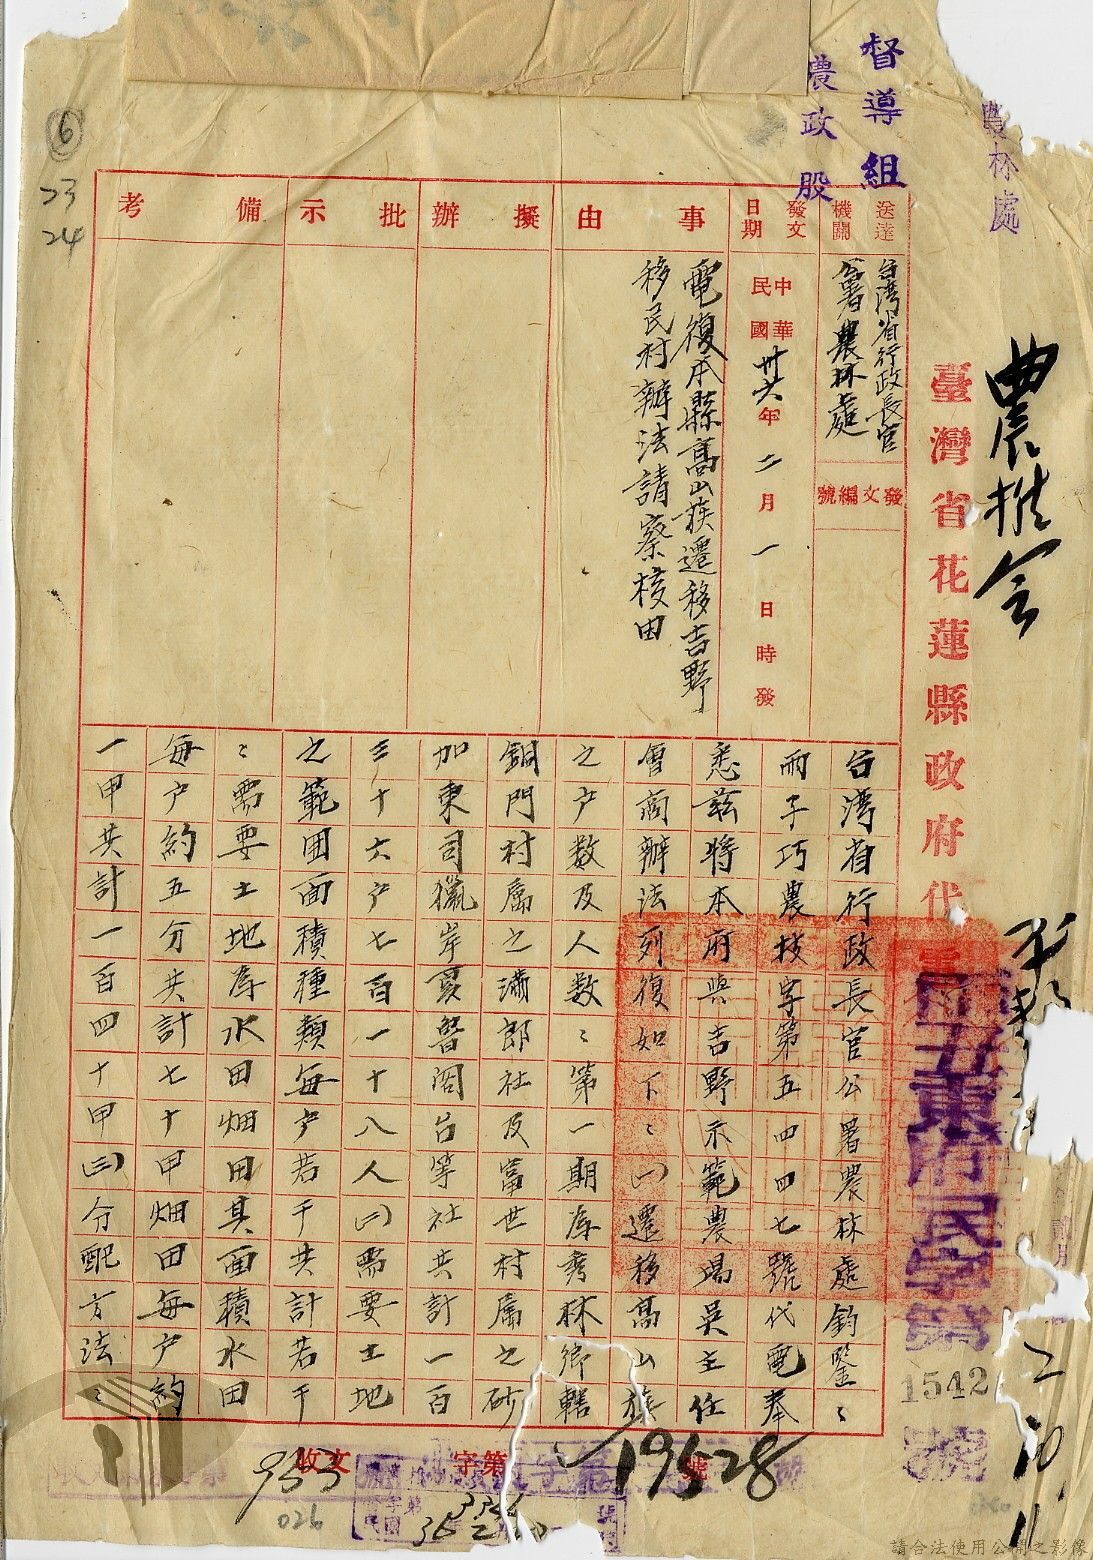 農林處
督導組
農政股
⑥
23
24
農推会
臺灣省花蓮縣政府代電
丑東府民字第1542號
送達機關
台湾省行政長官
公署農林處
發文編號
發文日期
中華民國卅六年二月一日時發
事由
電復本縣高山族遷移吉野
移民村辦法請察核由
擬辦
批示
備考
台湾省行政長官公署農林處鈞鑒：
南子巧農技字第五四四七號代電奉
悉茲將本府與吉野示範農場吳主任
會商辦法列復如下：(一)遷移高山族
之户数及人数：第一期為秀林鄉轄
銅門村属之溝郎社及富世村属之砂
加東司獵岸夏督閣台等社共計一百
三十六户七百一十八人(二)需要土地
之範囲面積種類每户若干共計若干
：需要土地為水田畑田其面積水田
每户約五分共計七十甲畑田每户約
一甲共計一百四十甲(三)分配方法：
收文 字第 19528 號
933
026
336
36 2 10
2 10
11
請合法使用公開之影像